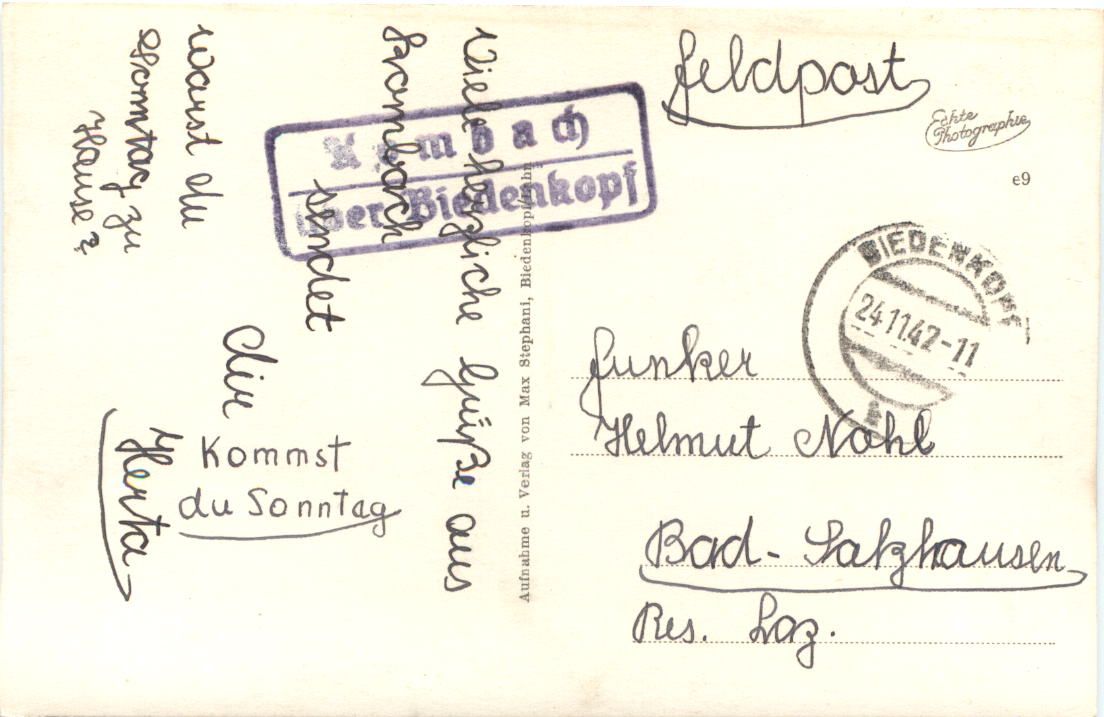 Feldpost
Echte
Photographie
e9
Kombach
über Biedenkopf
BIEDENKOPF
24.11.42-11
Funker
Helmut Nohl
Bad-Salzhausen
Res. Laz.
Aufnahme u. Verlag von Max Stephani, Biedenkopf/Lahn
Viele herzliche Grüße aus
Kombach
sendet
dir
Herta
Kommst
du Sonntag
warst du
Sonntag zu
Hause?